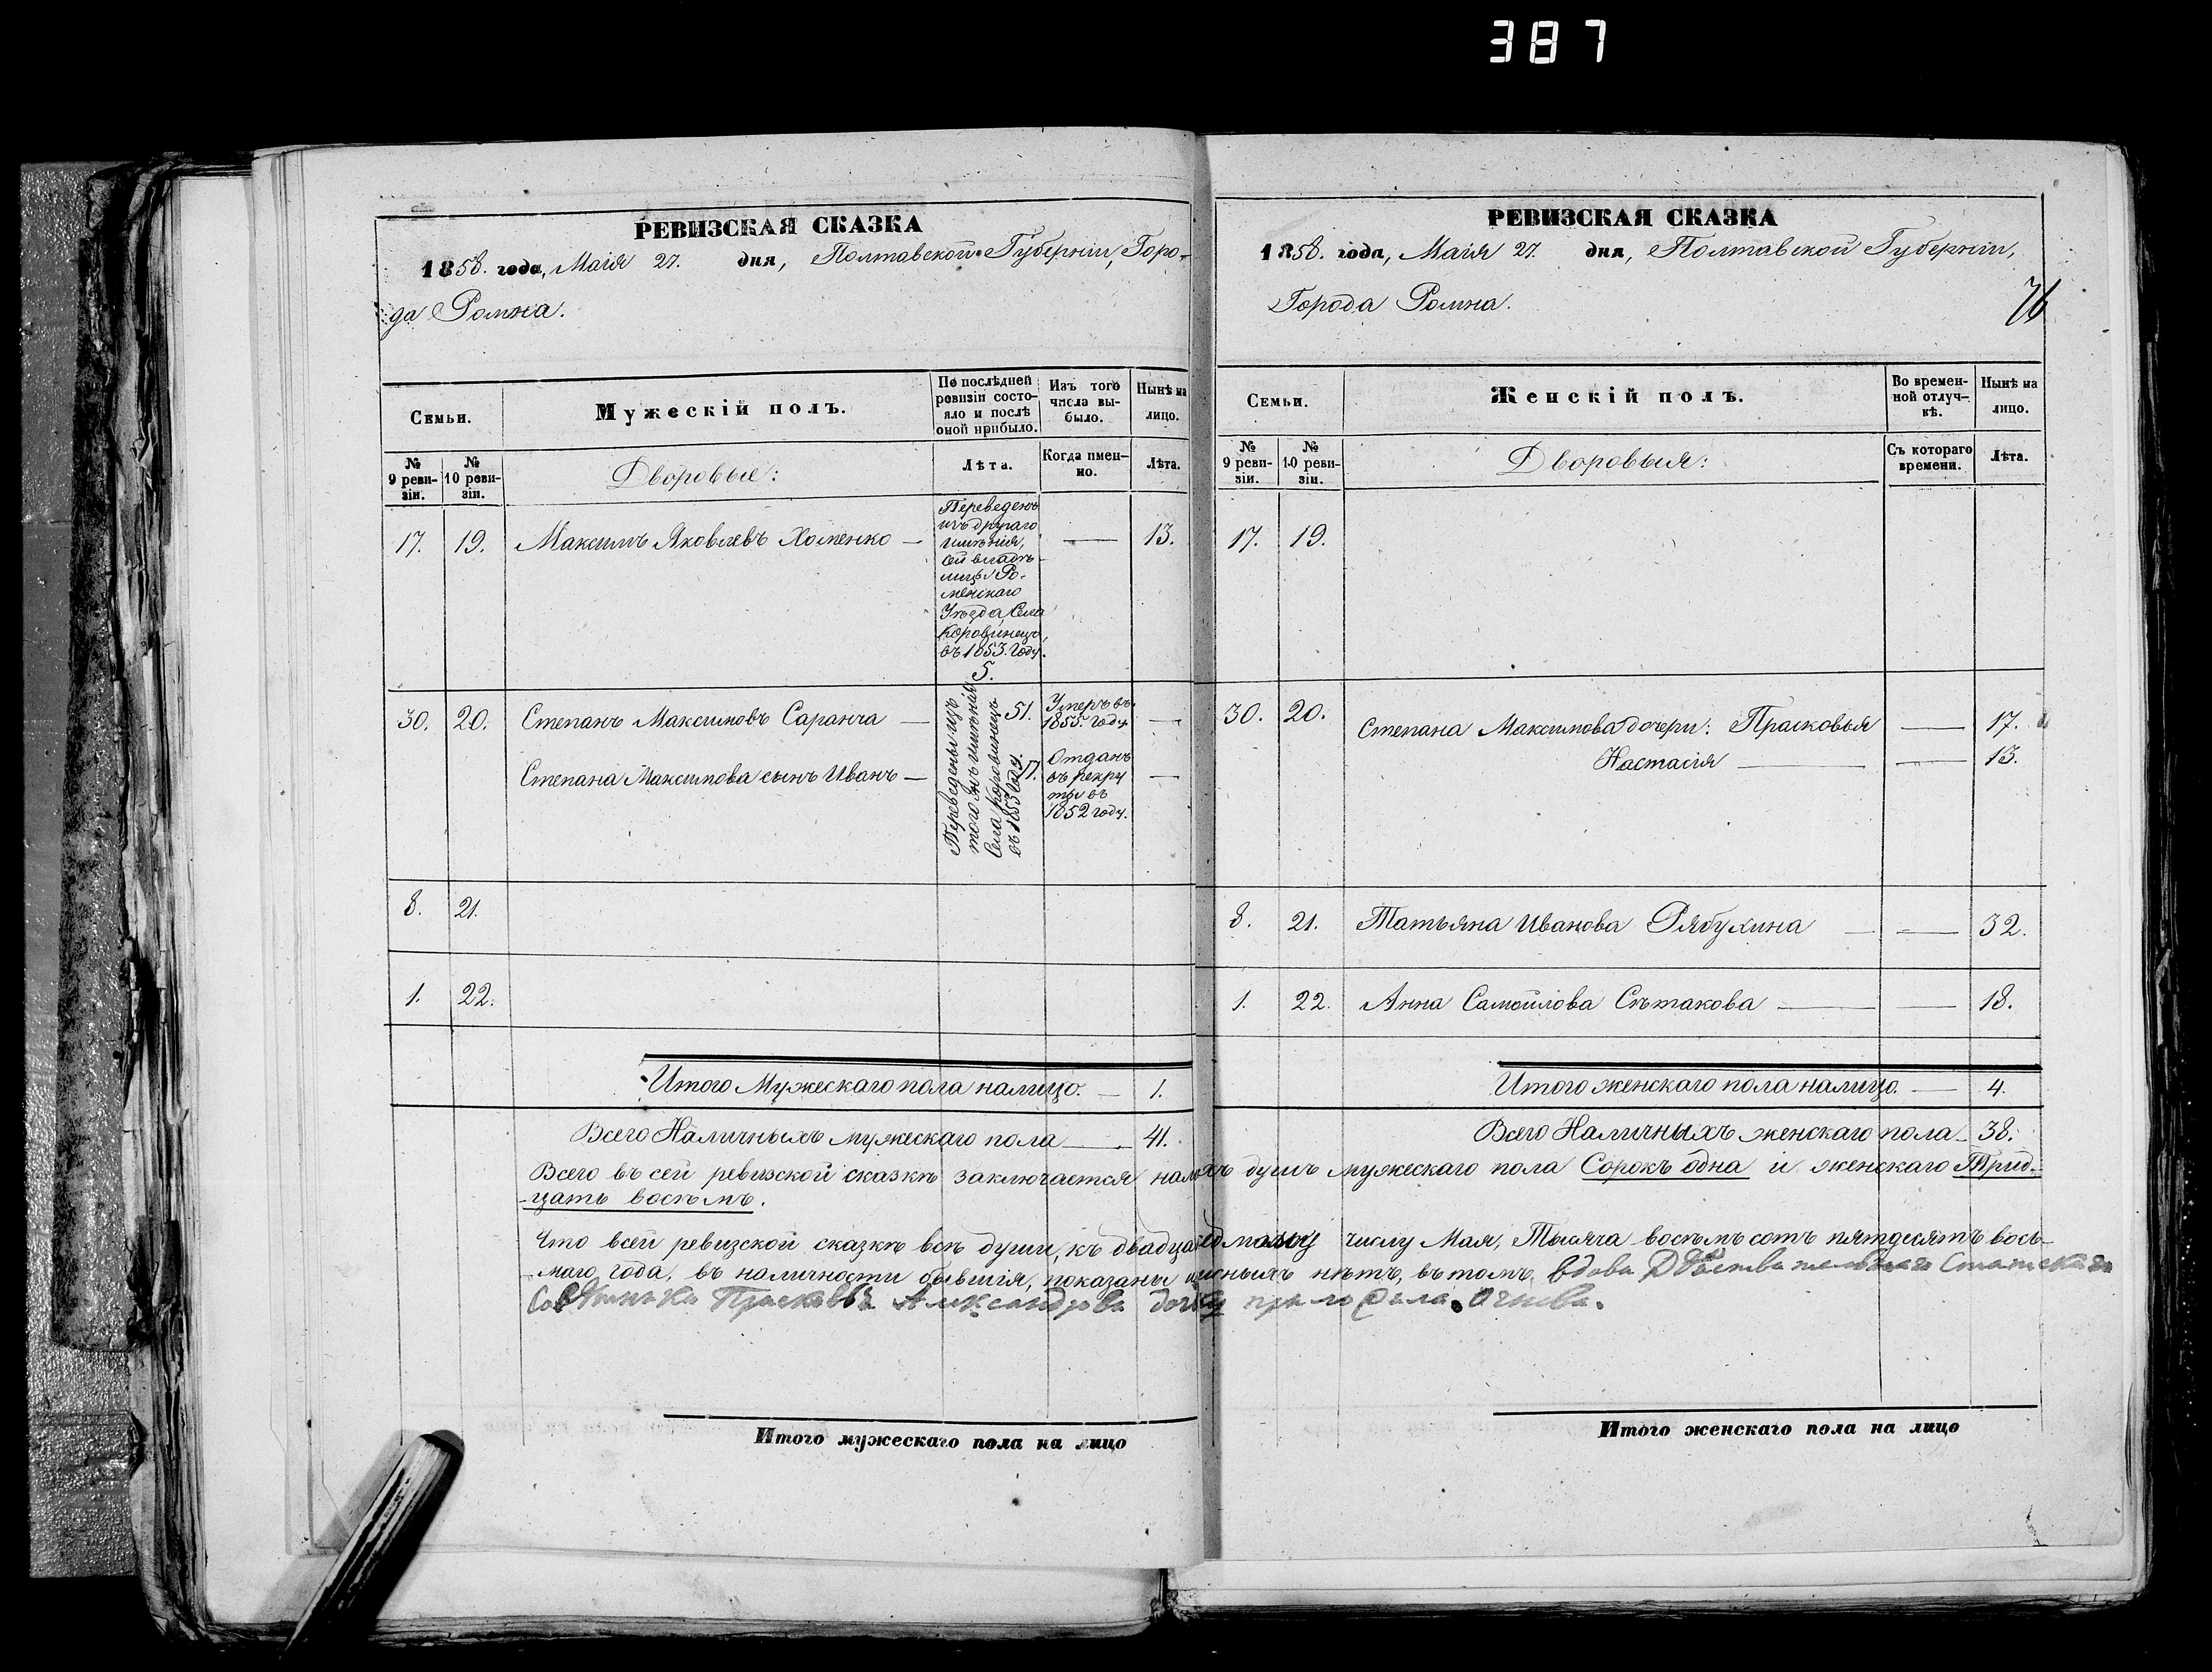 387
РЕВИЗСКАЯ СКАЗКА
1858. года, Маія 27. дня, Полтавской Губерніи, Горо-
да Ромна.
Семьи.
Мужескій полъ.
По послѣдней
ревизіи состо-
яло и послѣ
оной прибыло.
Изъ того
числа вы-
было.
Нынѣ на
лицо.
№
9 реви-
зіи.
№
10 реви-
зіи.
Дворовые:
Лѣта.
Когда имен-
но.
Лѣта.
17. 19. Максимъ Яковлевъ Хоменко — — 13.
Переведенъ
изъ другаго
имѣнія,
сей владѣ-
лицы Ро-
менскаго
Уѣзда, Села
Коровинецъ,
въ 1853. году.
5.
30. 20. Степанъ Максимовъ Саранча — 51. Умеръ въ 1855. году —
Степана Максимова сынъ Иванъ — 17. Отданъ
въ рекру
ты въ
1852 году. —
Переведены изъ
того жъ имѣнія
Села Коровинецъ
въ 1853 году.
8. 21.
1. 22.
Итого Мужескаго пола налицо. — 1.
Всего Наличныхъ мужескаго пола — 41.
РЕВИЗСКАЯ СКАЗКА
1858. года, Маія 27. дня, Полтавской Губерніи,
Города Ромна.
76
Семьи.
Женскій полъ.
Во времен-
ной отлуч-
кѣ.
Нынѣ на
лицо.
№
9 реви-
зіи.
№
10 реви-
зіи.
Дворовыя:
Съ котораго
времени.
Лѣта.
17. 19.
30. 20. Степана Максимова дочери: Прасковья — 17.
Настасія — — 13.
8. 21. Татьяна Иванова Рябухина — — 32.
1. 22. Анна Самойлова Сѣтакова — — 18.
Итого женскаго пола налицо. — 4.
Всего Наличныхъ женскаго пола — 38.
Всего въ сей ревизской сказкѣ заключается душъ мужескаго пола Сорокъ одна и женскаго Трид-
цать восемь.
Что всей ревизской сказкѣ всѣ души, къ числу Мая, Тысяча восемь сотъ пятдесятъ вось-
маго года, въ наличности бывшія, показаны и нѣтъ, въ томъ, вдова Действительнаго Статскаго
Советника Прасковья Александрова дочь
Итого мужескаго пола на лицо
Итого женскаго пола на лицо